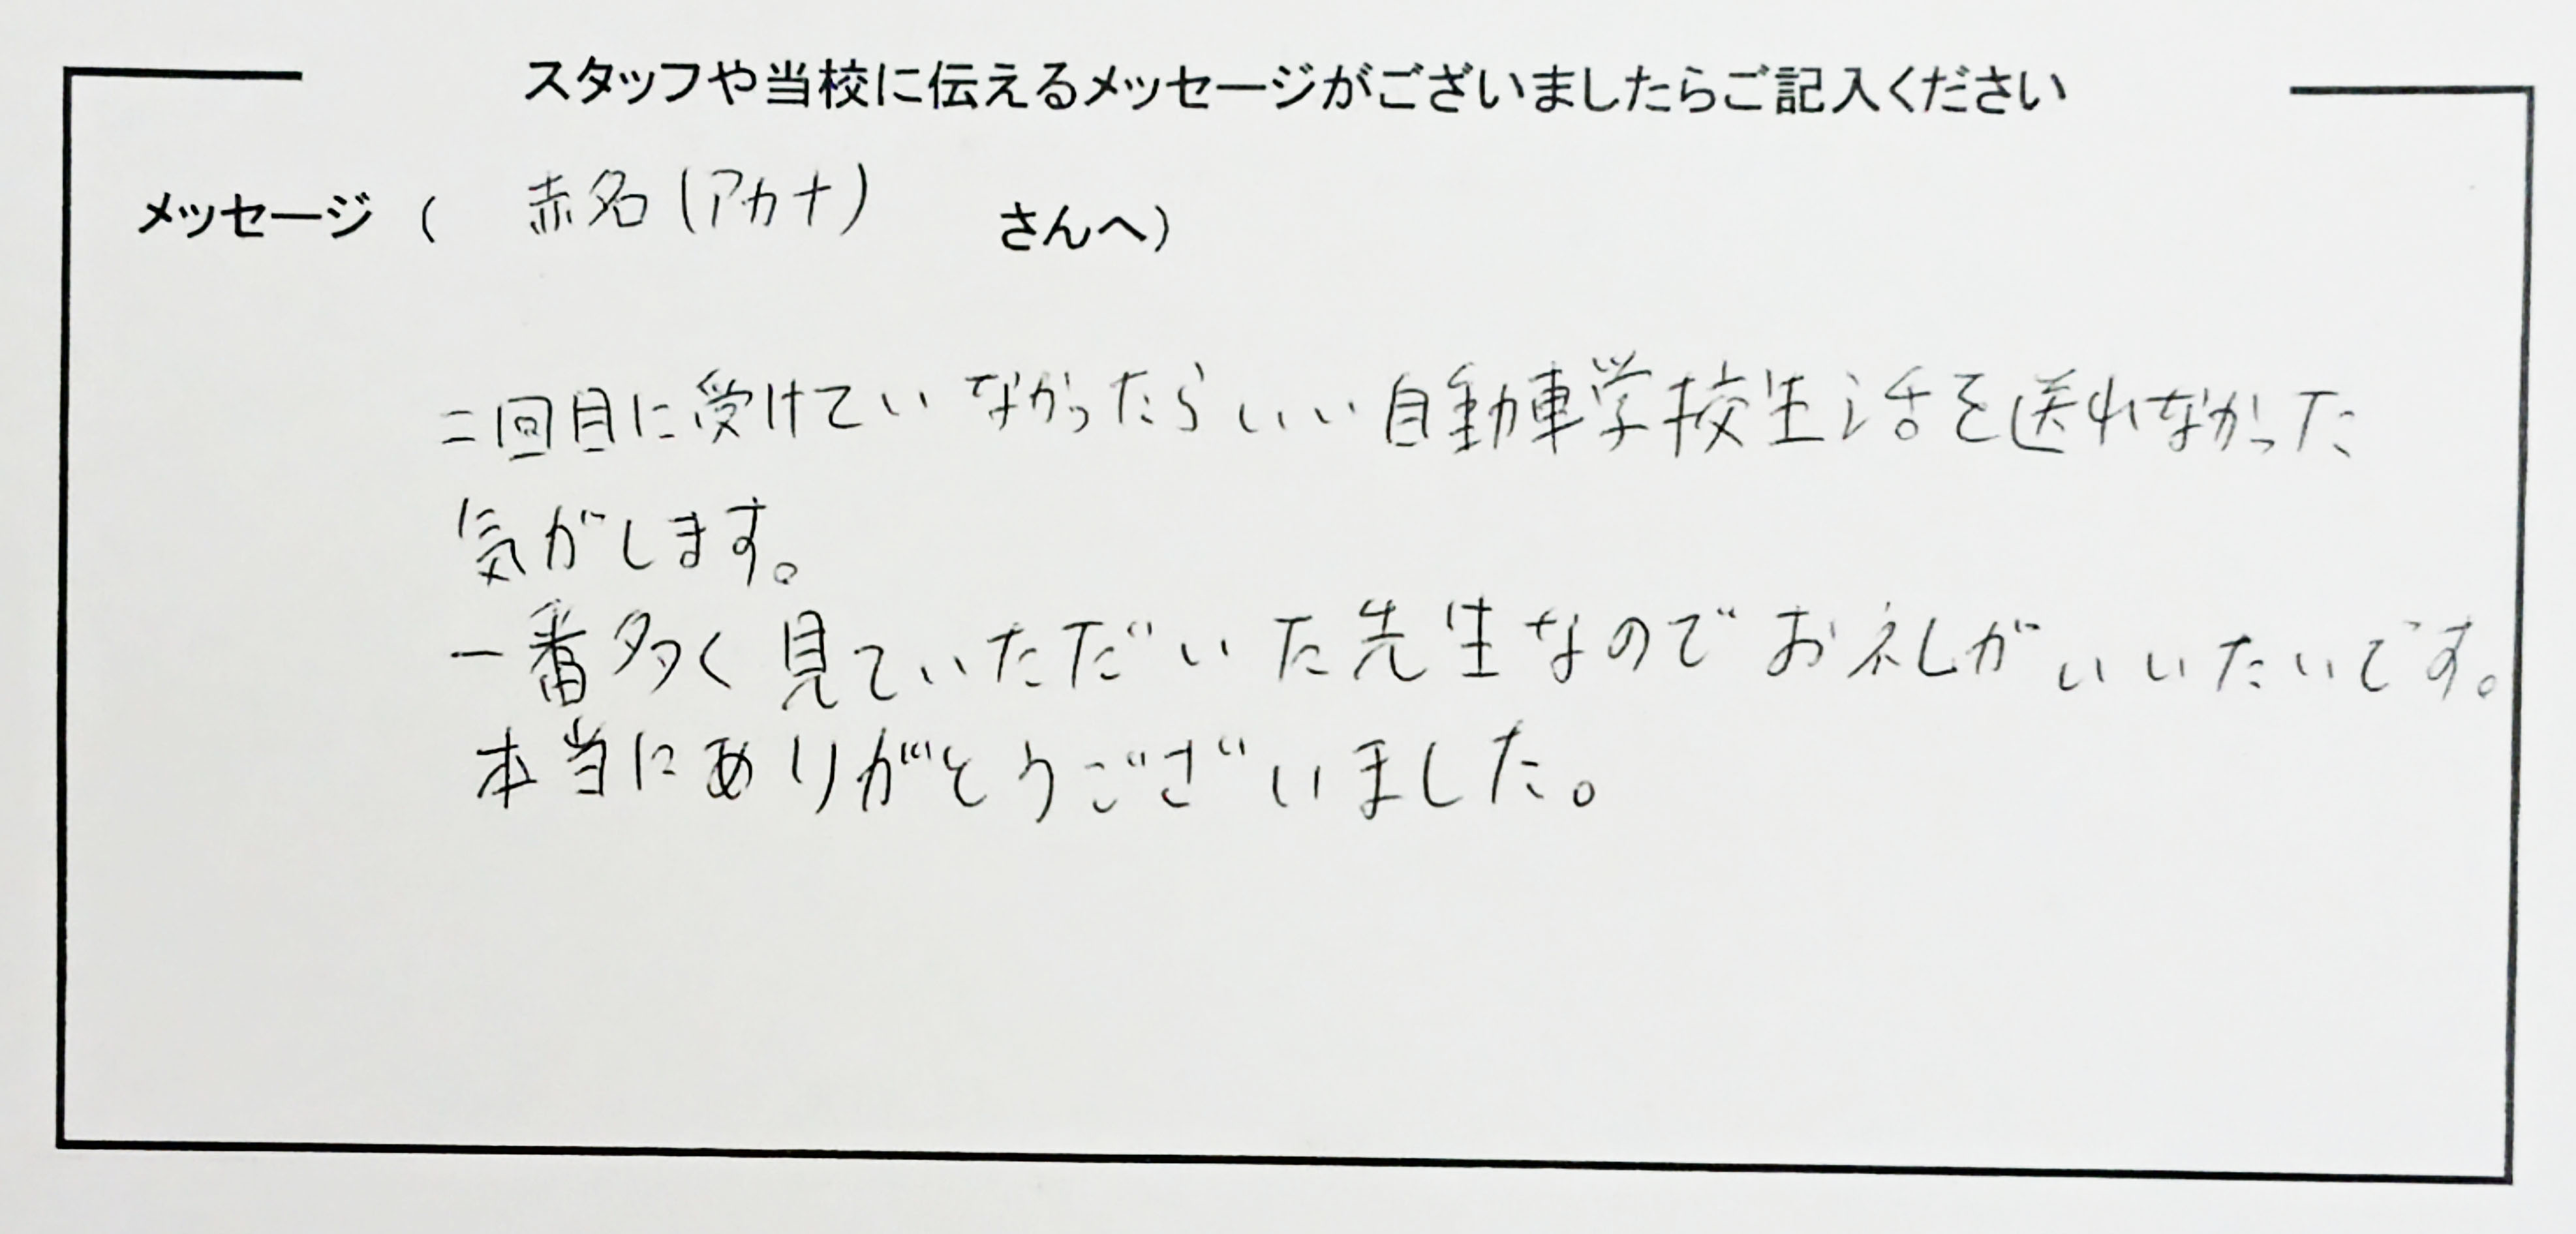 スタッフや当校に伝えるメッセージがございましたらご記入ください
メッセージ ( 赤名(アカナ) さんへ)
二回目に受けていなかったらいい自動車学校生活を送れなかった
気がします。
一番多く見ていただいた先生なのでお礼がいいたいです。
本当にありがとうございました。